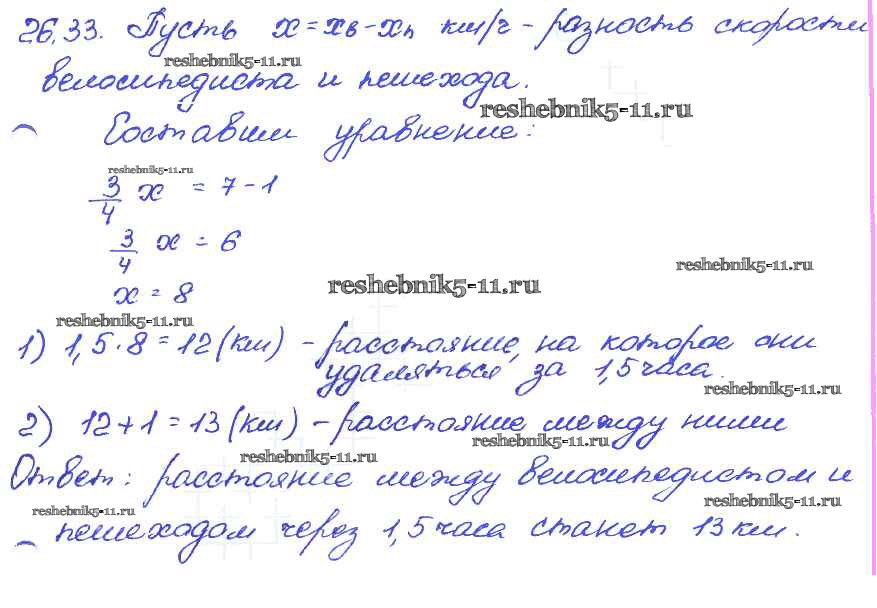 26.33. Пусть x = xв - xп км/ч - разность скорости
reshebnik5-11.ru
велосипедиста и пешехода.
reshebnik5-11.ru
Составим уравнение:
reshebnik5-11.ru
3/4 x = 7 - 1
3/4 x = 6
reshebnik5-11.ru
x = 8
reshebnik5-11.ru
reshebnik5-11.ru
1) 1,5 · 8 = 12 (км) - расстояние, на которое они
удаляться за 1,5 часа.
reshebnik5-11.ru
2) 12 + 1 = 13 (км) - расстояние между ними
reshebnik5-11.ru
reshebnik5-11.ru
Ответ: расстояние между велосипедистом и
reshebnik5-11.ru
reshebnik5-11.ru
пешеходом через 1,5 часа станет 13 км.